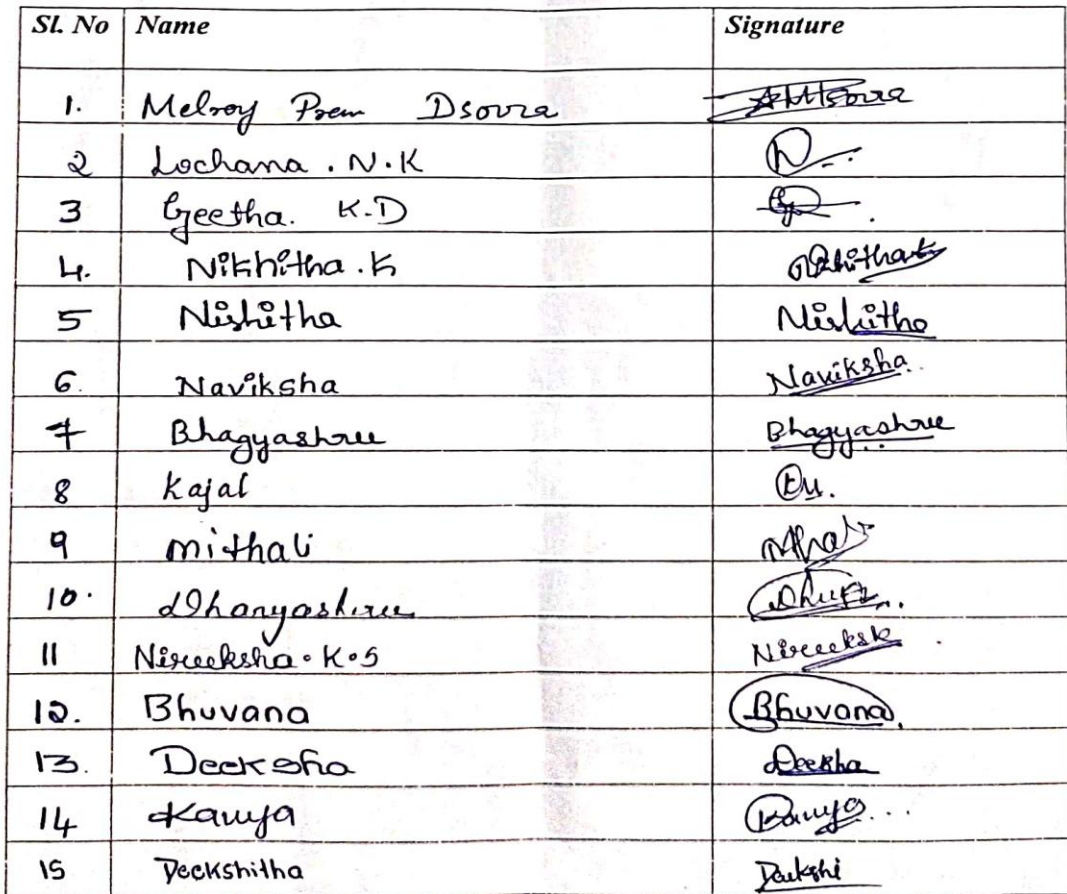 Sl. No Name Signature
1. Melroy Prem Dsouza
2 Lochana . N . K
3 Geetha. K.D
4. Nikhitha . K
5 Nishitha Nishitha
6. Naviksha Naviksha
7 Bhagyashree Bhagyashree
8 Kajal
9 Mithali
10. Dhanyashree
11 Nireeksha . K . S
12. Bhuvana Bhuvana
13. Deeksha Deeksha
14 Kavya Kavya
15 Deekshitha Deekshi